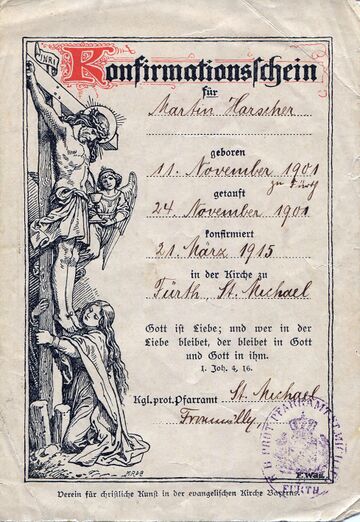 INRI
Konfirmationsschein
für
Martin Harscher
geboren
11. November 1901
zu Fürth
getauft
24. November 1901
konfirmiert
21. März 1915
in der Kirche zu
Fürth St. Michael
Gott ist Liebe; und wer in der
Liebe bleibet, der bleibet in Gott
und Gott in ihm.
1. Joh. 4, 16.
Kgl. prot. Pfarramt St. Michael
K. B. PROT. PFARRAMT ST. MICHAEL
FÜRTH
Verein für christliche Kunst in der evangelischen Kirche Bayerns.